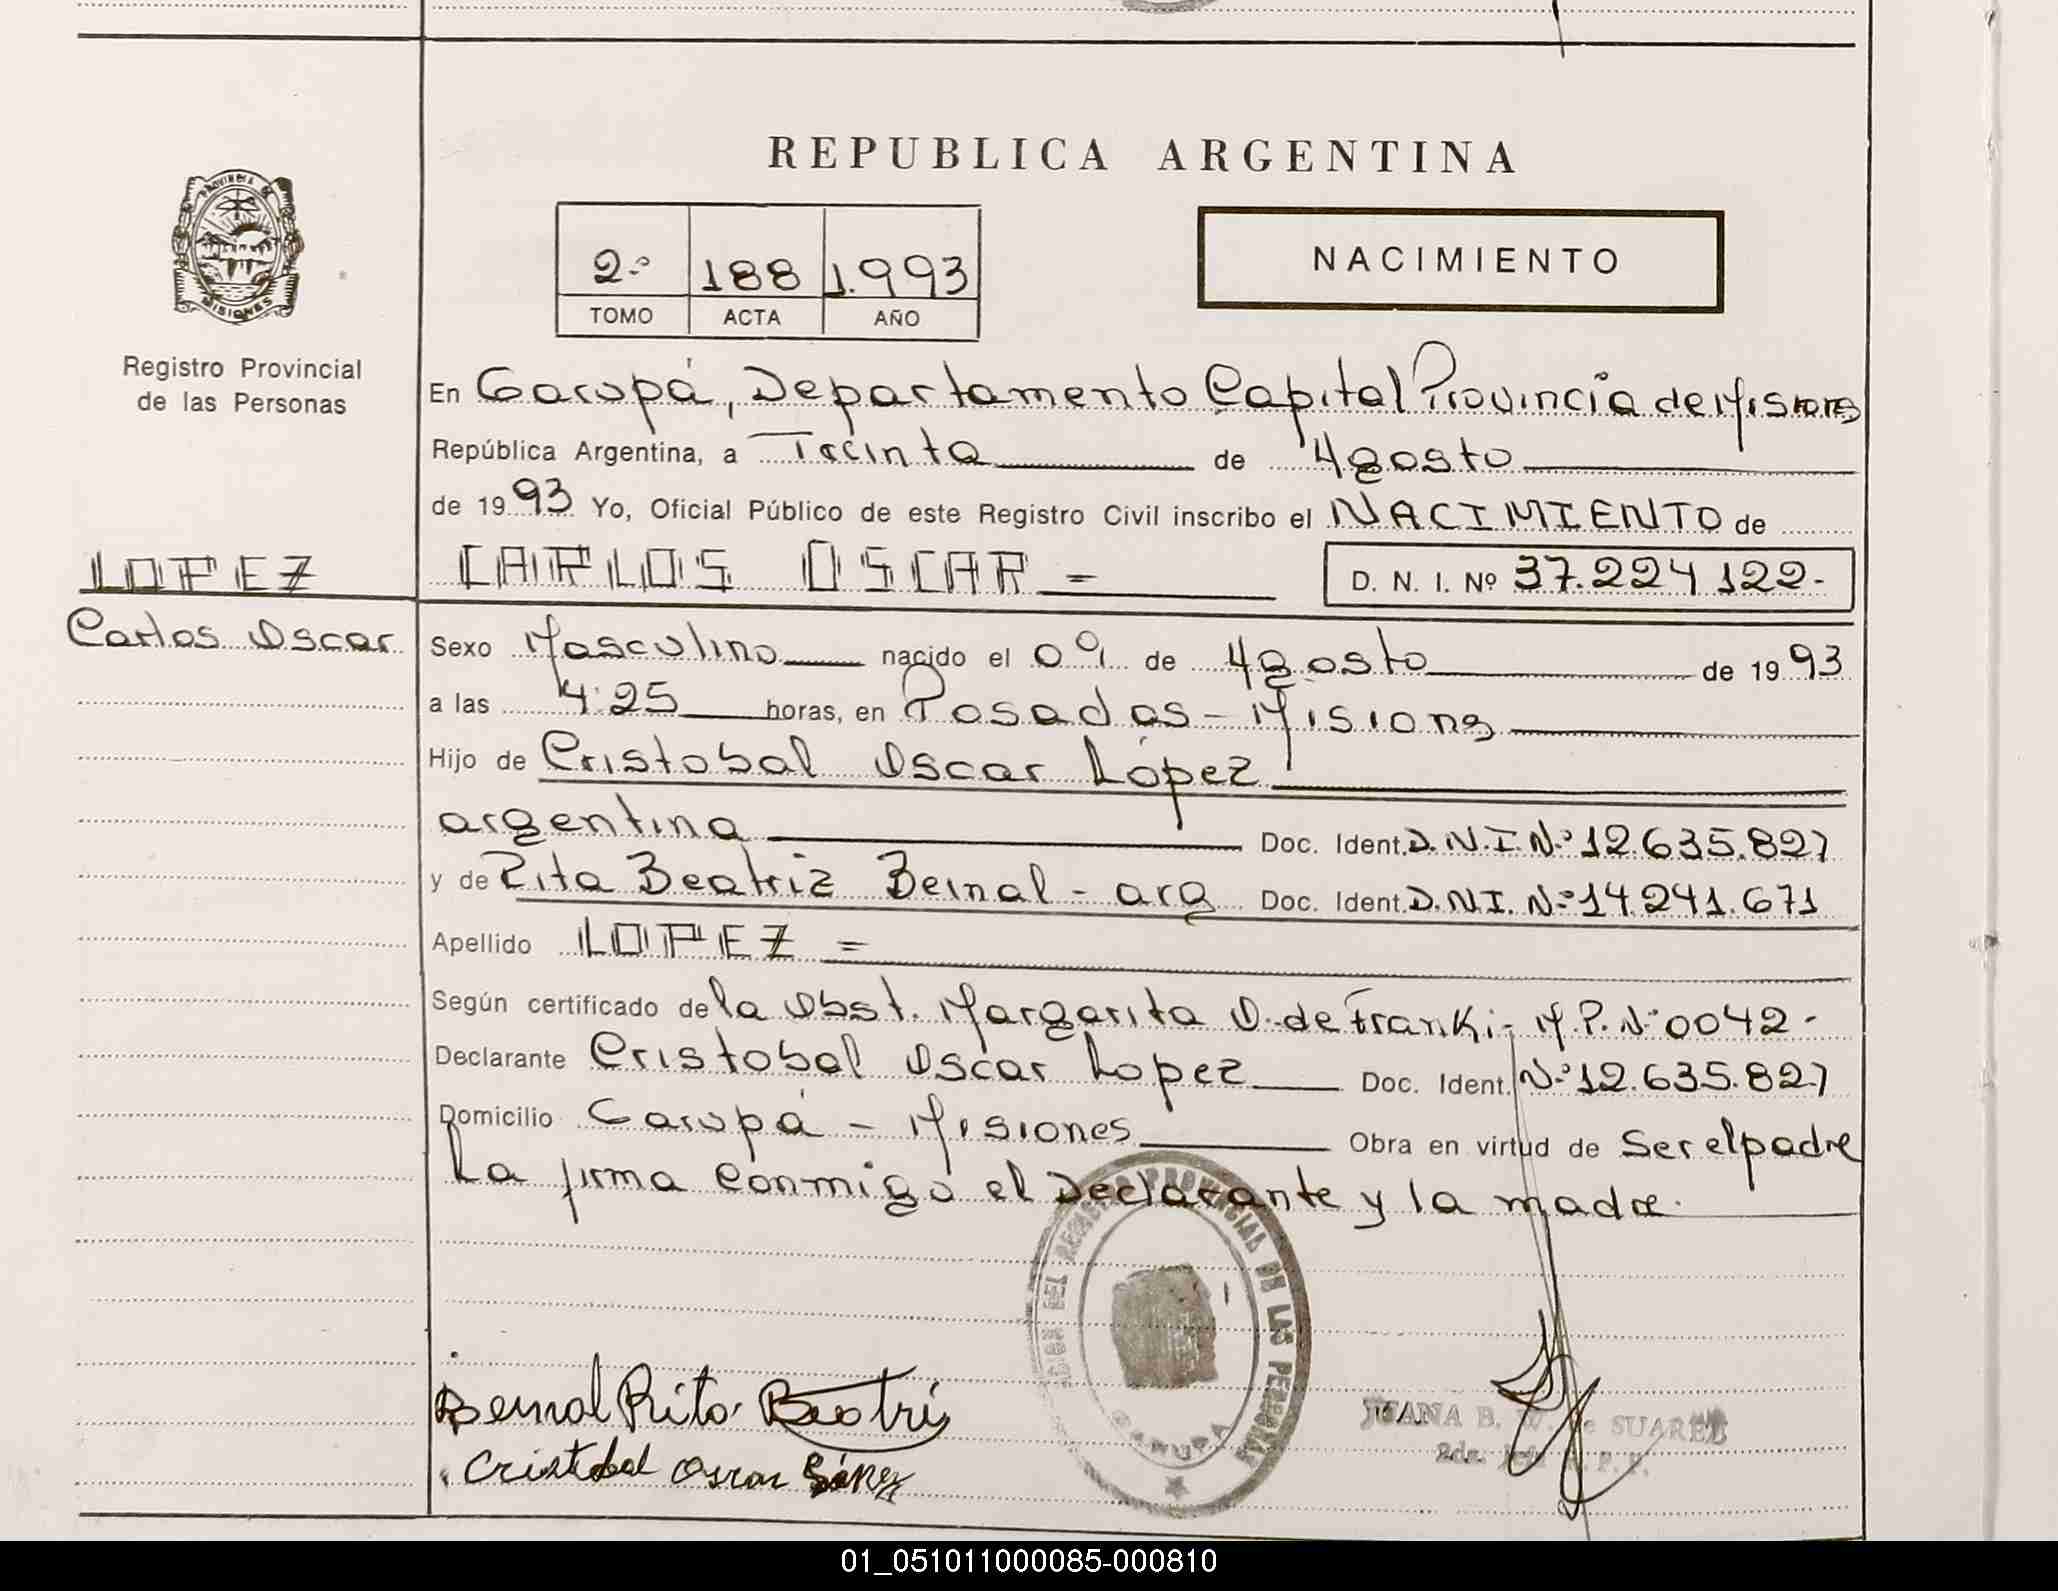 REPUBLICA ARGENTINA
PROVINCIA DE
MISIONES
2º 188 1.993
TOMO ACTA AÑO
NACIMIENTO
Registro Provincial
de las Personas
En Garupá, Departamento Capital Provincia de Misiones
República Argentina, a Treinta de Agosto
de 1993 Yo, Oficial Público de este Registro Civil inscribo el NACIMIENTO de
LOPEZ
CARLOS OSCAR =
D. N. I. Nº 37.224.122-
Carlos Oscar
Sexo Masculino nacido el 09 de Agosto de 1993
a las 4:25 horas, en Posadas - Misiones
Hijo de Cristobal Oscar López
argentina Doc. Ident. D.N.I. Nº 12.635.827
y de Rita Beatriz Bernal - arg Doc. Ident. D.N.I. Nº 14.241.671
Apellido LOPEZ =
Según certificado de la Obst. Margarita D. de Franki - M.P. Nº 0042-
Declarante Cristobal Oscar Lopez Doc. Ident. Nº 12.635.827
Domicilio Garupá - Misiones Obra en virtud de Ser el padre
La firma conmigo el Declarante y la madre.
DEL REGISTRO PROVINCIAL DE LAS PERSONAS
GARUPA
Bernal Rita Beatri
Cristobal Oscar
JUANA B. W. de SUAREZ
01_051011000085-000810